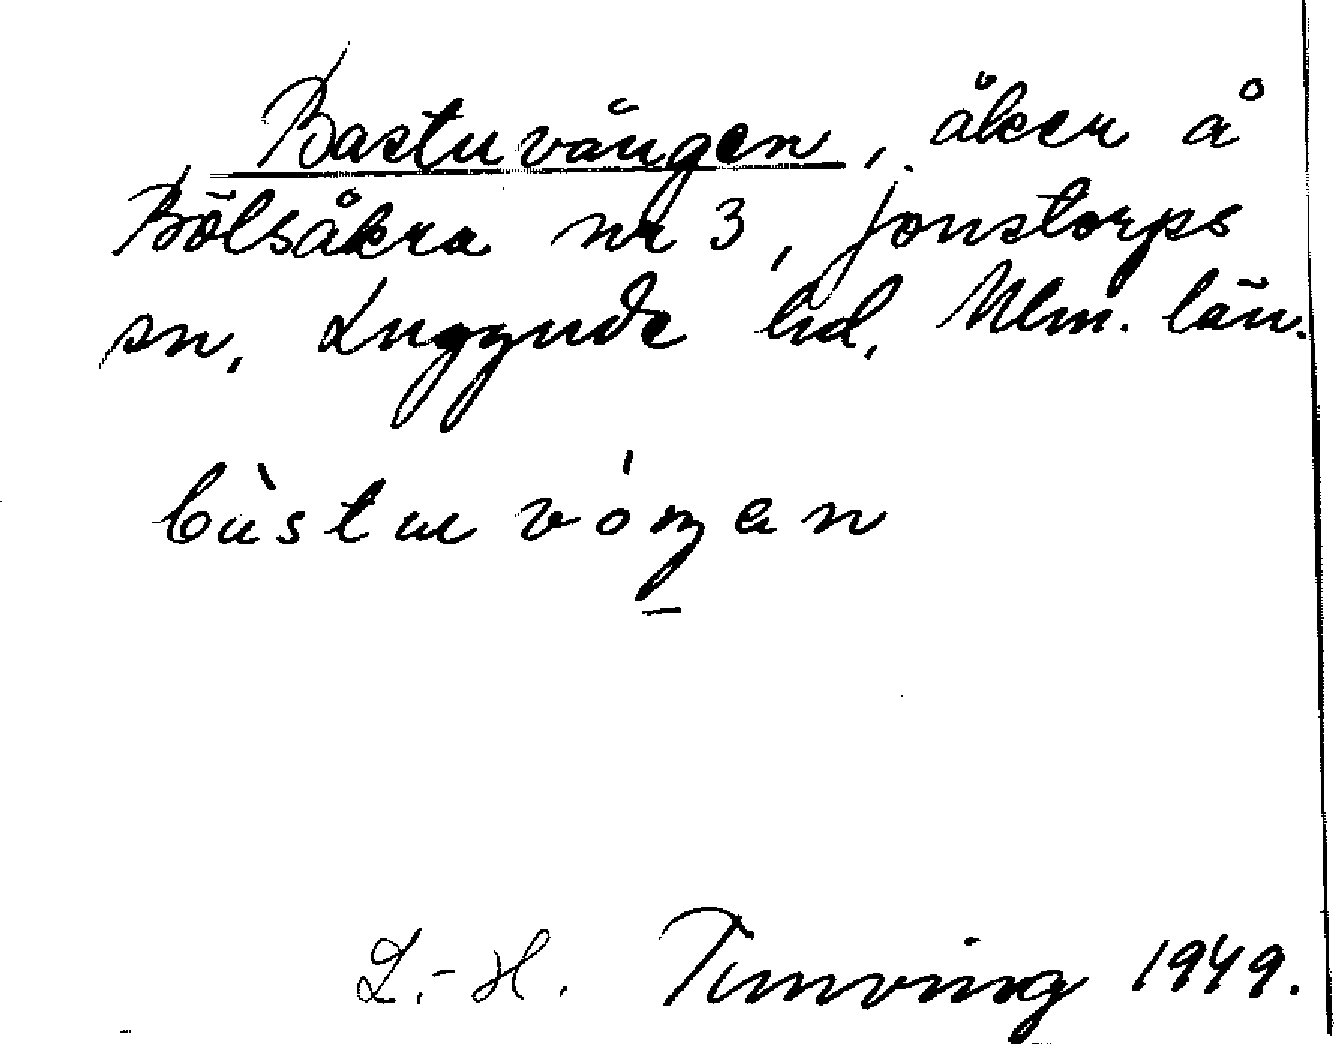 Bastuvången, åker å
Bölsåkra nr 3, Jonstorps
sn. Luggude hd, Mlm. län.
bùstu vóŋen
L.-H. Tunving 1949.